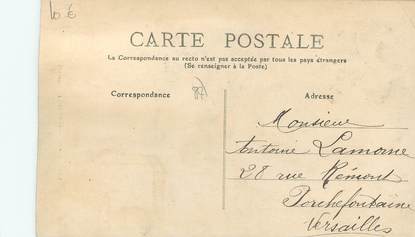 10 €
CARTE POSTALE
La Correspondance au recto n'est pas acceptée par tous les pays étrangers
(Se renseigner à la Poste)
Correspondance
Adresse
Monsieur
Antoine Lamome
28 rue Rémont
Porchefontaine
Versailles